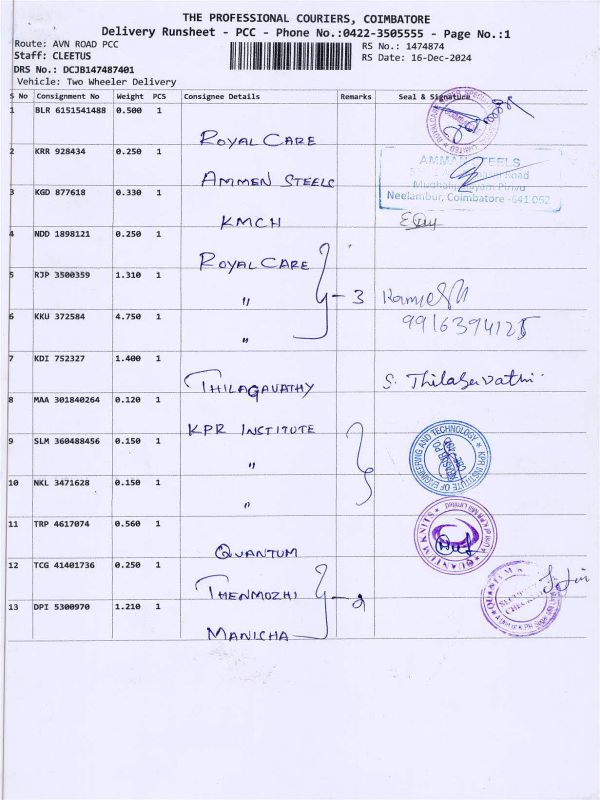 THE PROFESSIONAL COURIERS, COIMBATORE
Delivery Runsheet - PCC - Phone No.:0422-3505555 - Page No.:1
Route: AVN ROAD PCC
RS No.: 1474874
Staff: CLEETUS
RS Date: 16-Dec-2024
DRS No.: DCJB147487401
Vehicle: Two Wheeler Delivery
S No Consignment No Weight PCS Consignee Details Remarks Seal & Signature
1 BLR 6151541488 0.500 1
ROYAL CARE
2 KRR 928434 0.250 1
AMMEN STEELS
AMMAN STEELS
Road
Neelambur, Coimbatore -641 062
3 KGD 877618 0.330 1
KMCH
4 NDD 1898121 0.250 1
ROYAL CARE
5 RJP 3500359 1.310 1
" - 3
6 KKU 372584 4.750 1
"
7 KDI 752327 1.400 1
THILAGAVATHY S. Thilagavathi
8 MAA 301840264 0.120 1
KPR INSTITUTE
9 SLM 360488456 0.150 1
"
KPR INSTITUTE OF ENGINEERING AND TECHNOLOGY
10 NKL 3471628 0.150 1
"
11 TRP 4617074 0.560 1
QUANTUM
QUANTUM KNITS
12 TCG 41401736 0.250 1
THENMOZHI - 2
13 DPI 5300970 1.210 1
MANICHA